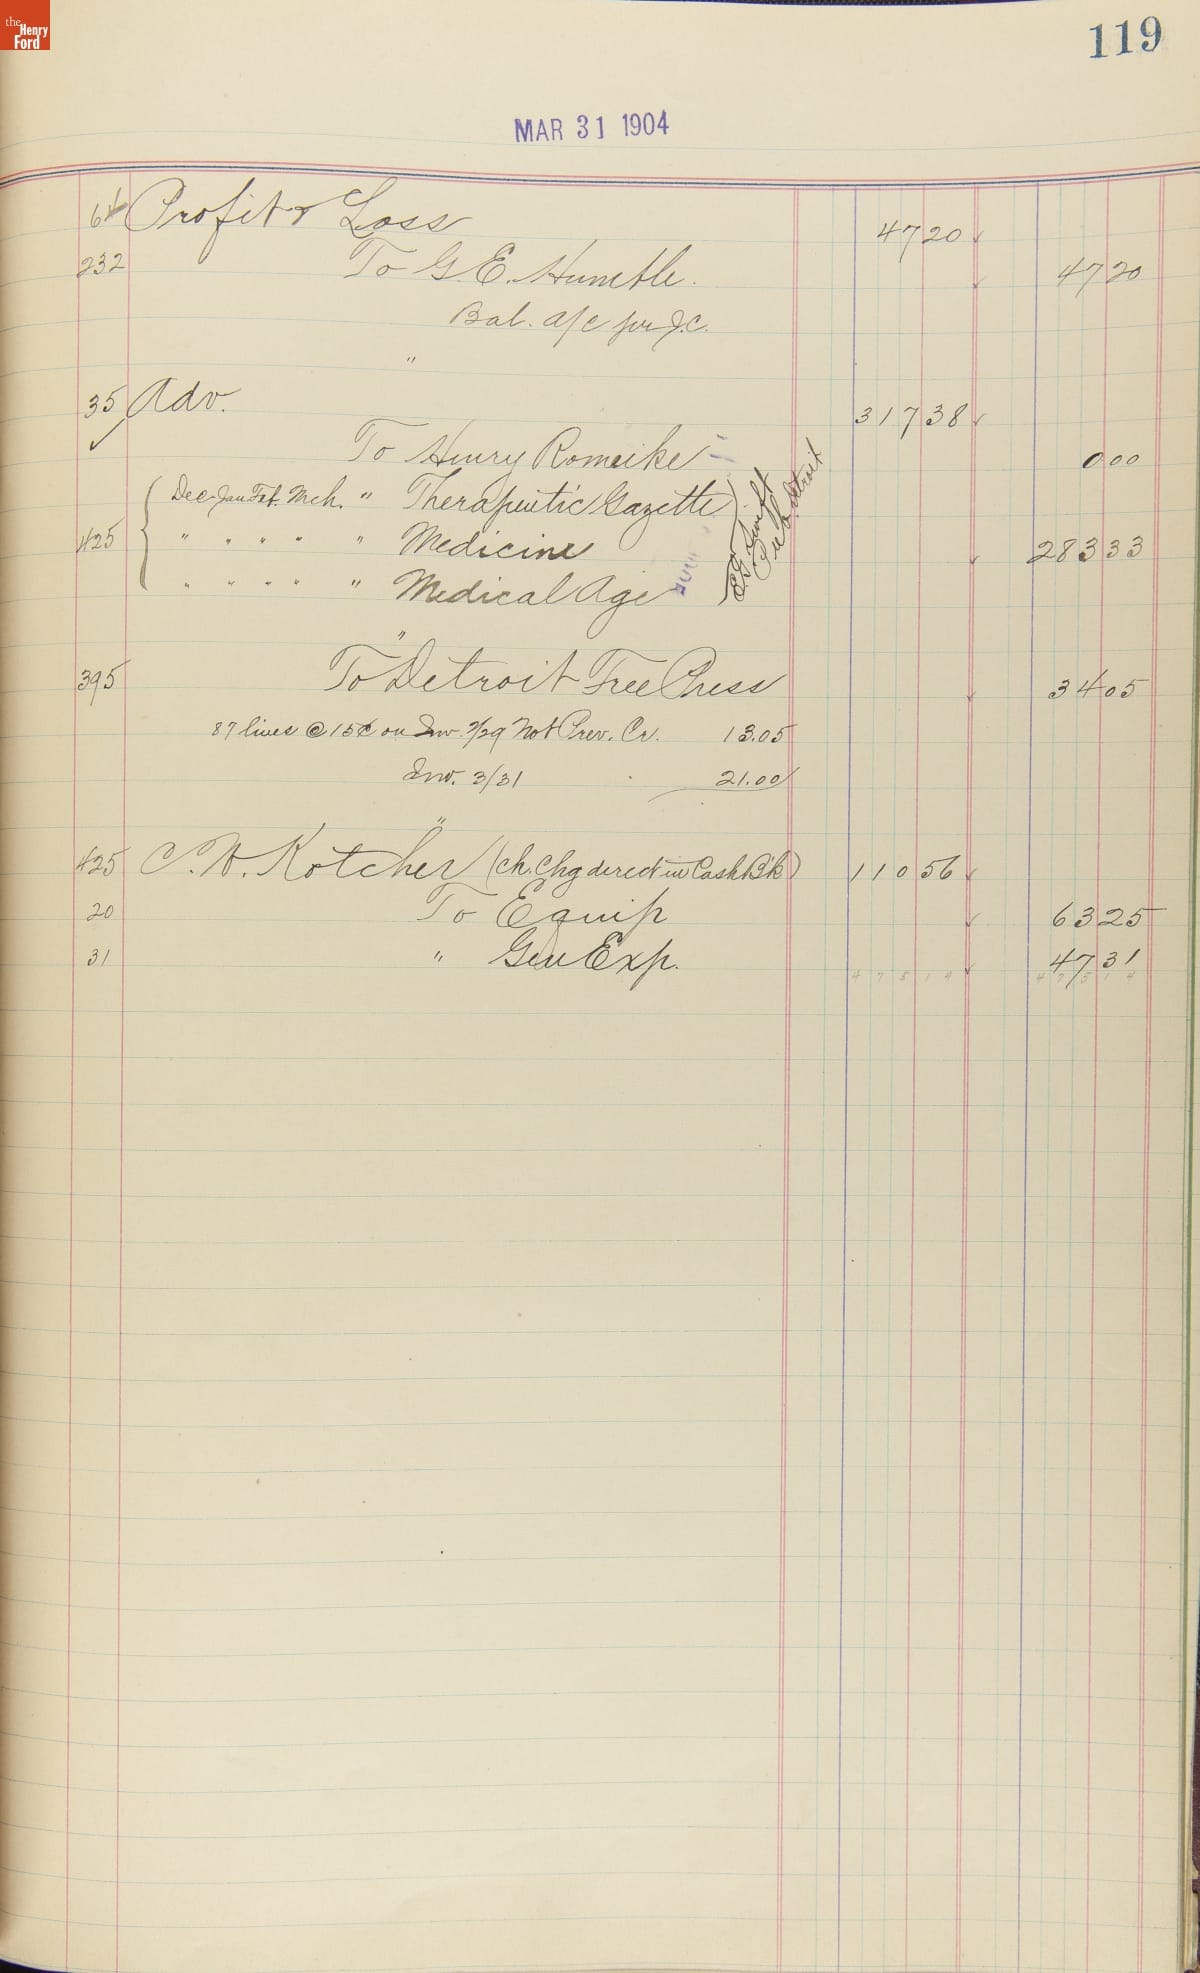 the
Henry
Ford
119
MAR 31 1904
Profit & Loss 47 20
232 To G. E. Humble. 47 20
Bal. a/c per J.C.
"
35 Adv. 317 38
To Henry Romeike 0 00
Dec Jan Feb. Mch. " Therapeutic Gazette
425 " " " " " Medicine 283 33
" " " " " Medical Age
E. G. Swift
Pub. Detroit
"
395 To Detroit Free Press 34 05
87 lines @ 15¢ on Inv. 2/29 Not Prev. Cr. 13.05
Inv. 3/31 21.00
"
425 C. W. Kotcher (Ch. Chg direct in Cash B'k) 110 56
20 To Equip 63 25
31 " Gen Exp. 47 31
475 14 475 14